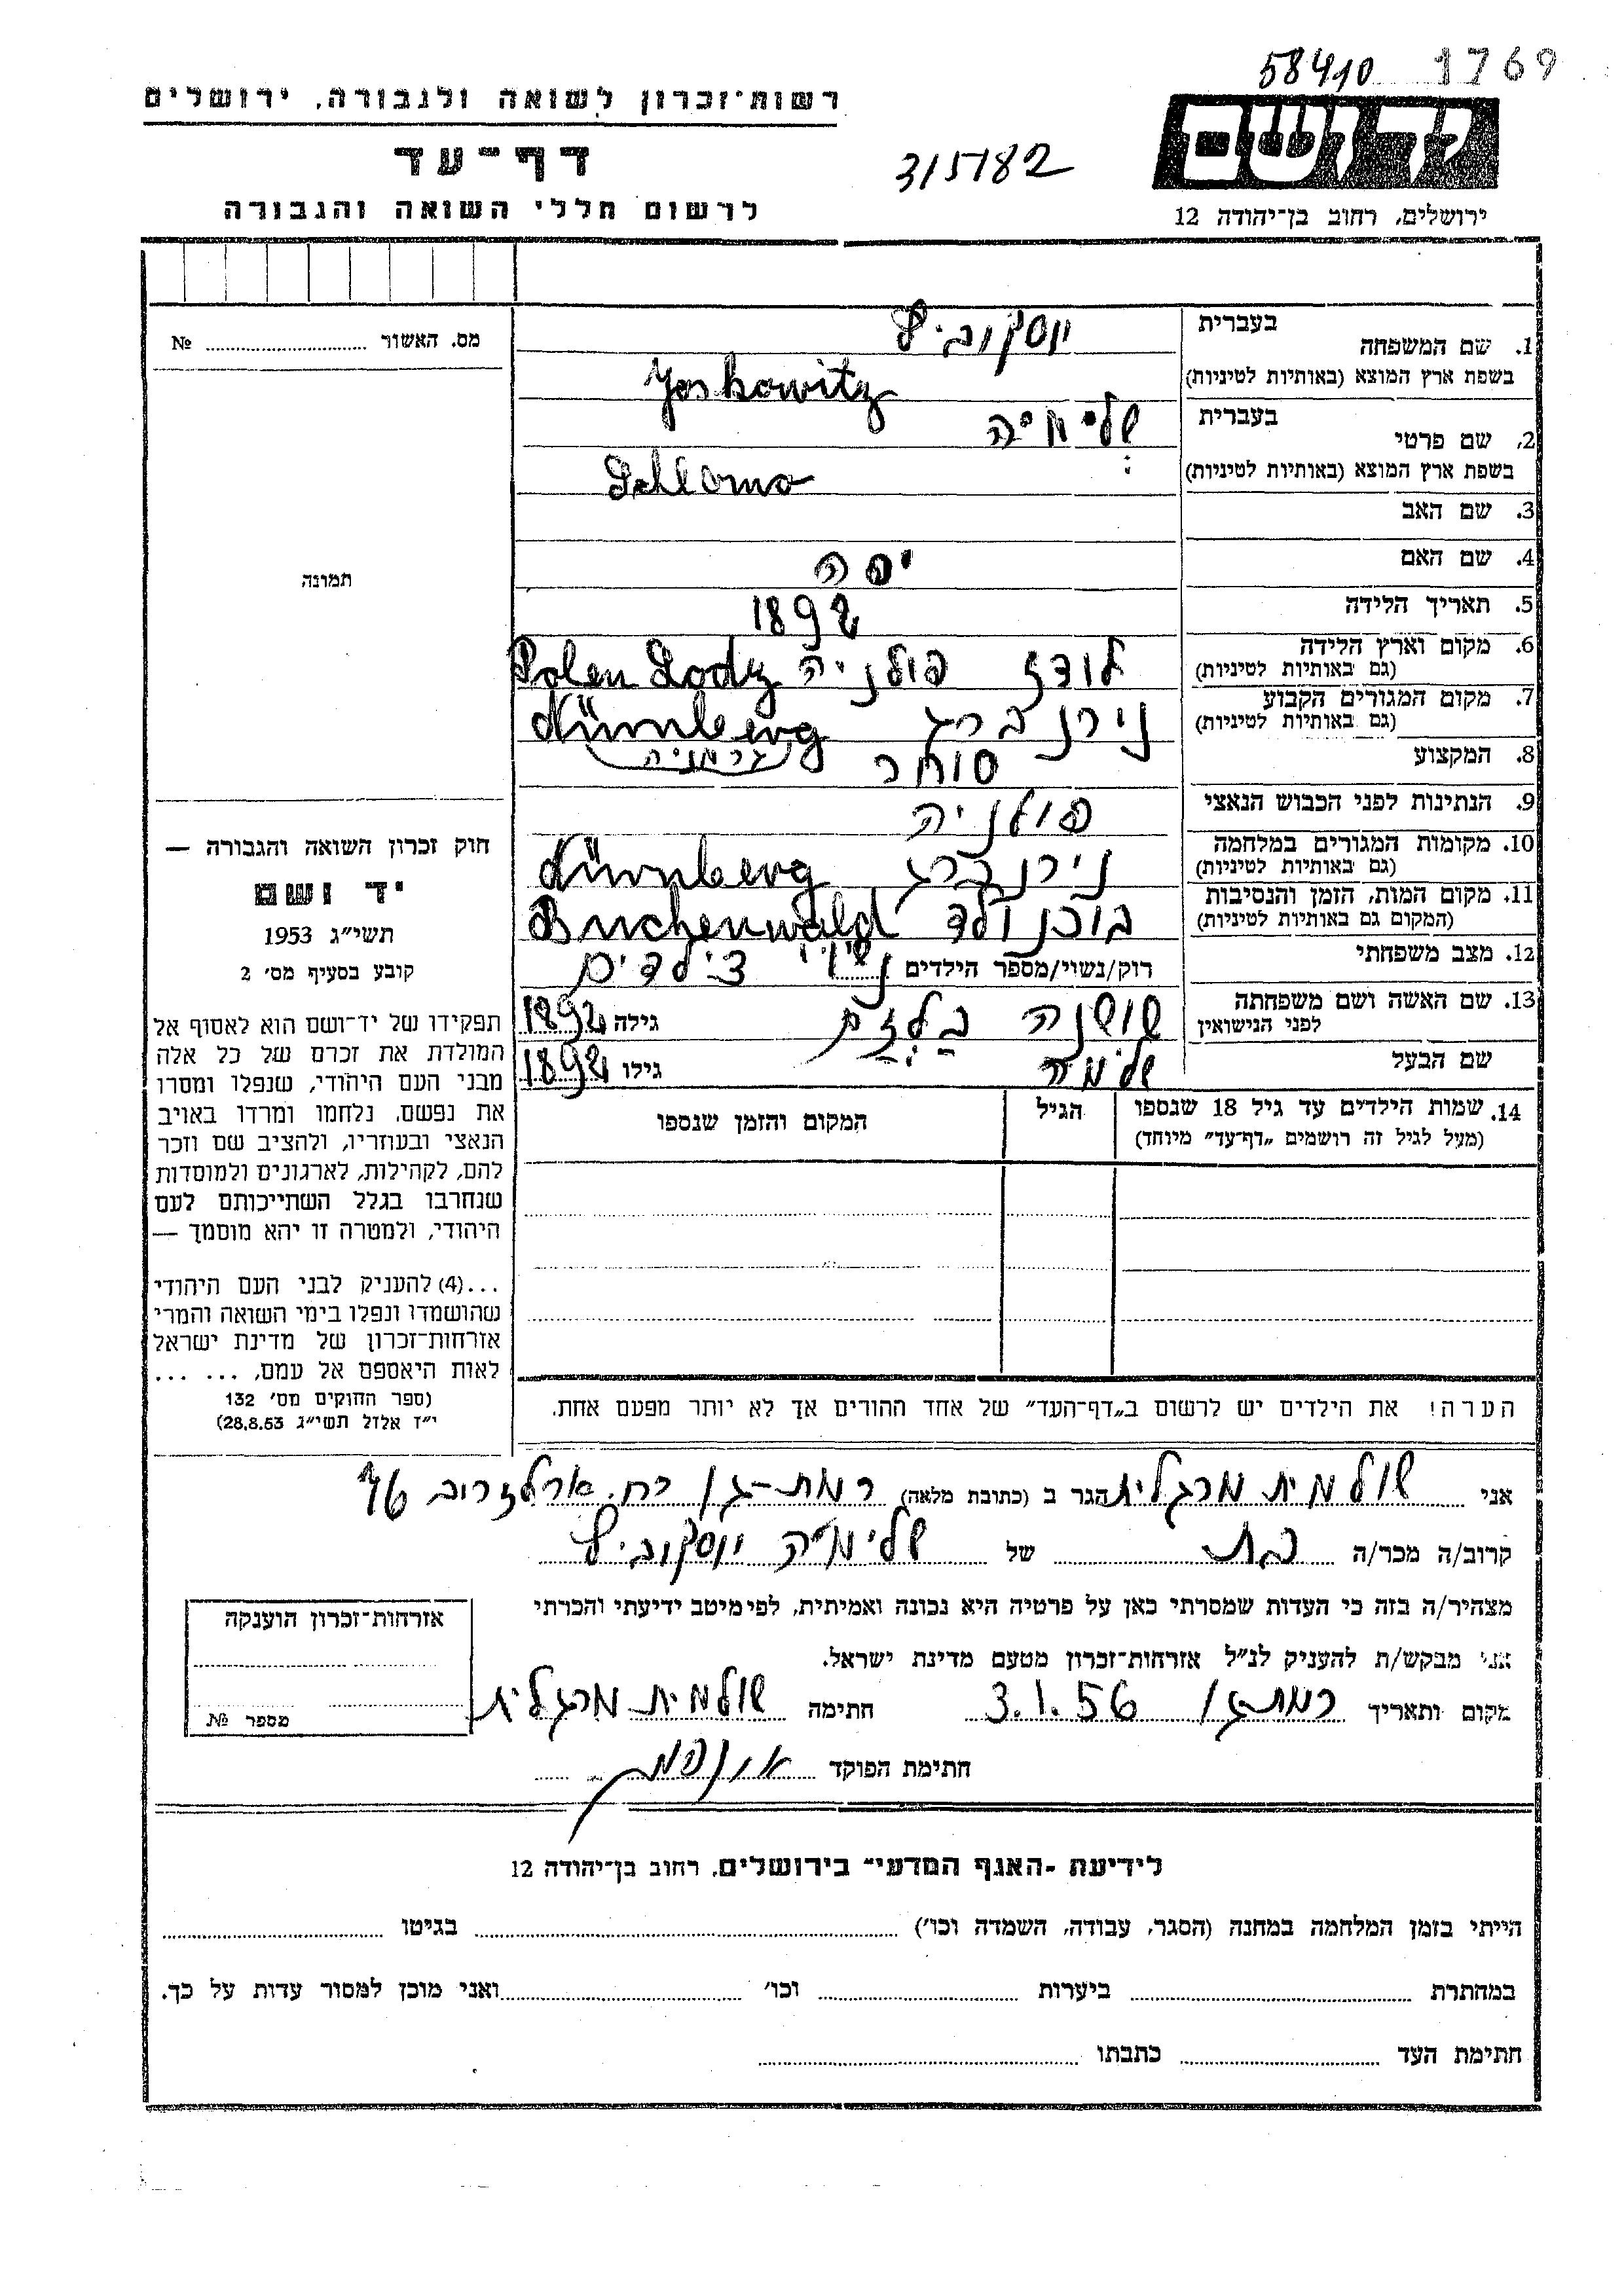 58410 1769
רשות־זכרון לשואה ולגבורה, ירושלים
דף־עד
3/5782
לרשום חללי השואה והגבורה
ירושלים, רחוב בן־יהודה 12
מס. האשור ... №
תמונה
חוק זכרון השואה והגבורה —
יד ושם
תשי״ג 1953
קובע בסעיף מס׳ 2
תפקידו של יד־ושם הוא לאסוף אל
המולדת את זכרם של כל אלה
מבני העם היהודי, שנפלו ומסרו
את נפשם, נלחמו ומרדו באויב
הנאצי ובעוזריו, ולהציב שם וזכר
להם, לקהילות, לארגונים ולמוסדות
שנחרבו בגלל השתייכותם לעם
היהודי, ולמטרה זו יהא מוסמך —
...(4) להעניק לבני העם היהודי
שהושמדו ונפלו בימי השואה והמרי
אזרחות־זכרון של מדינת ישראל
לאות היאספם אל עמם, ... ...
(ספר החוקים מס׳ 132
י״ז אלול תשי״ג 28.8.53)
1. שם המשפחה
בעברית יוסקוביץ
בשפת ארץ המוצא (באותיות לטיניות) Yoskowitz
2. שם פרטי
בעברית שלימה
בשפת ארץ המוצא (באותיות לטיניות) Schlomo
3. שם האב
4. שם האם יפה
5. תאריך הלידה 1892
6. מקום וארץ הלידה לודז פולניה Polen Lodz
(גם באותיות לטיניות)
7. מקום המגורים הקבוע נירנברג Nürnberg
(גם באותיות לטיניות) (גרמניה)
8. המקצוע סוחר
9. הנתינות לפני הכבוש הנאצי פולניה
10. מקומות המגורים במלחמה נירנברג Nürnberg
(גם באותיות לטיניות)
11. מקום המות, הזמן והנסיבות בוכנולד Buchenwald
(המקום גם באותיות לטיניות)
12. מצב משפחתי רוק/נשוי/מספר הילדים נשוי 3 ילדים
13. שם האשה ושם משפחתה שושנה גילה 1892
לפני הנישואין
שם הבעל שלימה גילו 1892
14. שמות הילדים עד גיל 18 שנספו הגיל המקום והזמן שנספו
(מעל לגיל זה רושמים „דף־עד״ מיוחד)
הערה! את הילדים יש לרשום ב„דף־העד״ של אחד ההורים אך לא יותר מפעם אחת.
אני שולמית מרגלית הגר ב (כתובת מלאה) רמת-גן רח. ארלוזרוב 76
קרוב/ה מכר/ה בת של שלימה יוסקוביץ
מצהיר/ה בזה כי העדות שמסרתי כאן על פרטיה היא נכונה ואמיתית, לפי מיטב ידיעתי והכרתי
אני מבקש/ת להעניק לנ״ל אזרחות־זכרון מטעם מדינת ישראל.
מקום ותאריך רמת גן 3.1.56 חתימה שולמית מרגלית
חתימת הפוקד
אזרחות־זכרון הוענקה
מספר №
לידיעת ״האגף המדעי״ בירושלים, רחוב בן־יהודה 12
הייתי בזמן המלחמה במחנה (הסגר, עבודה, השמדה וכו׳) בגיטו
במחתרת ביערות וכו׳ ואני מוכן למסור עדות על כך.
חתימת העד כתבתו